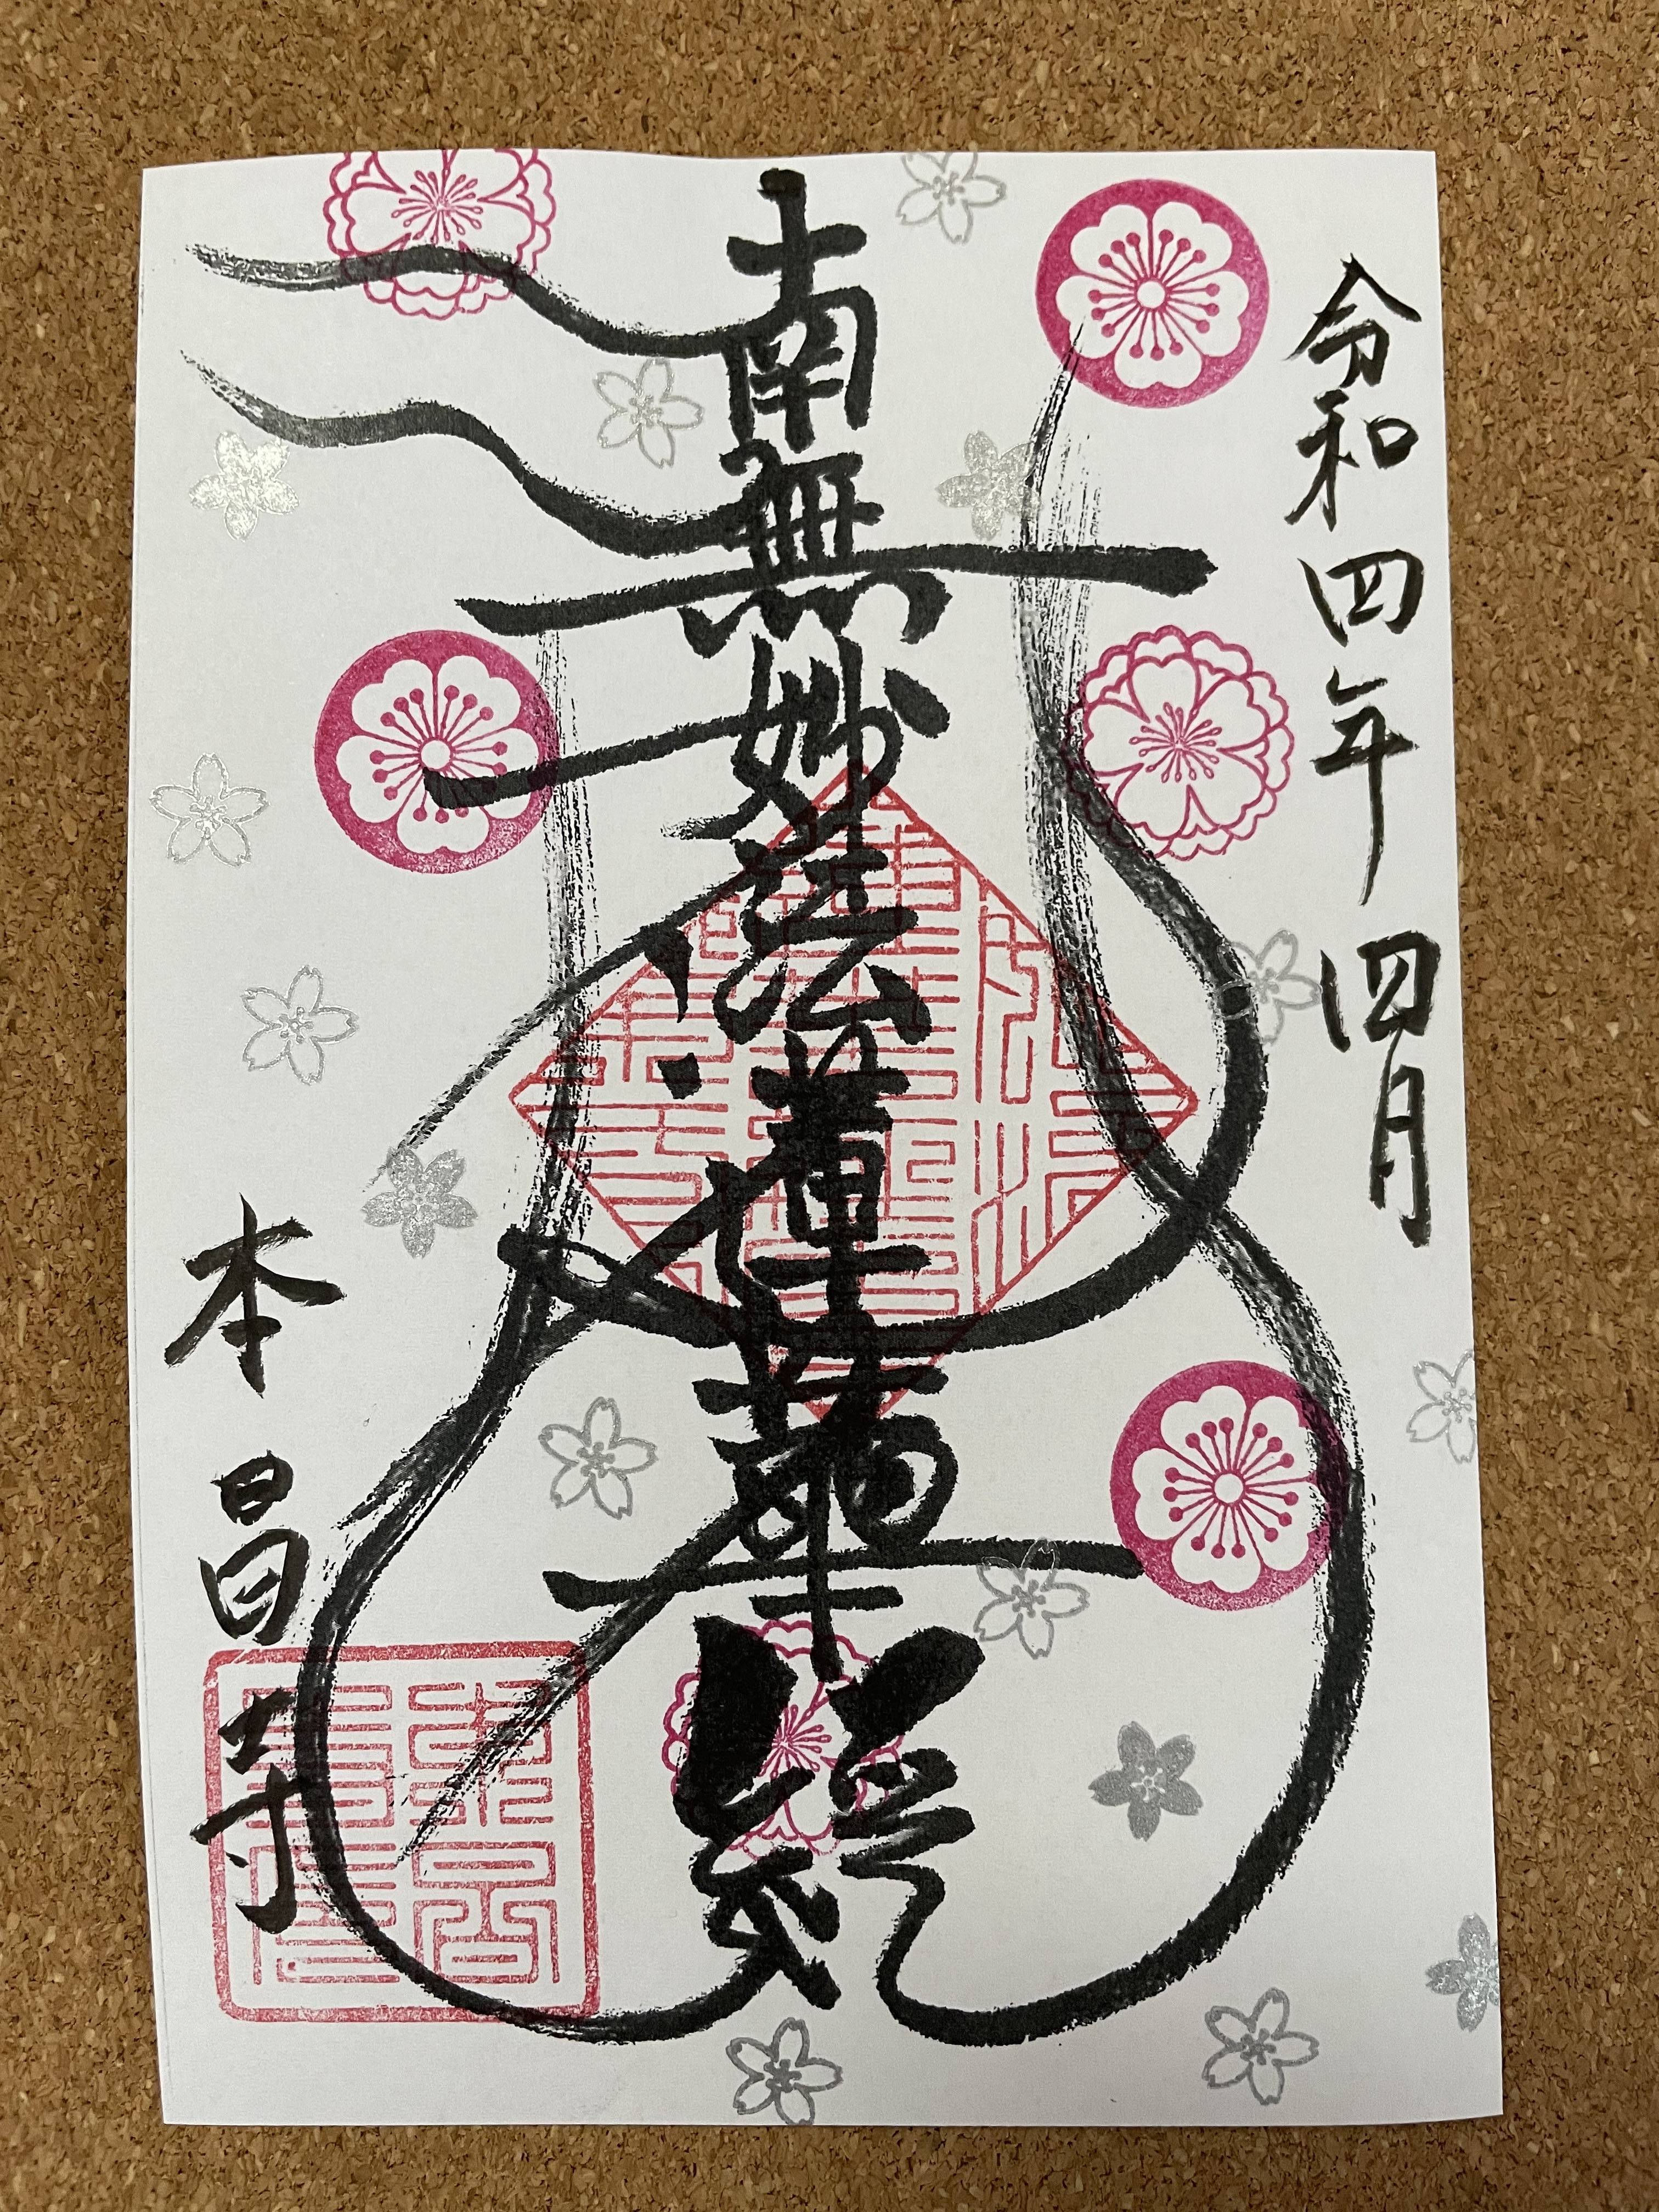 令和四年 四月
南無妙法蓮華経
本昌寺